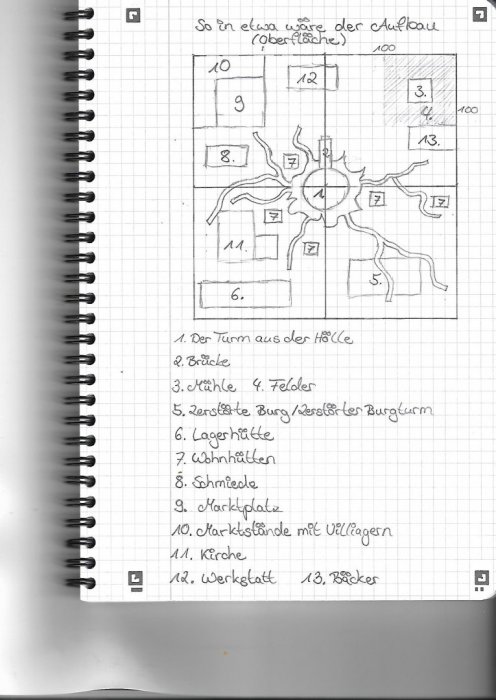 So in etwa wäre der Aufbau
(Oberfläche)
100
10
12
9
3.
4.
100
13.
8.
7
2
1
7
7
7
7
11.
5.
6.
1. Der Turm aus der Hölle
2. Brücke
3. Mühle 4. Felder
5. zerstörte Burg/zerstörter Burgturm
6. Lagerhütte
7. Wohnhütten
8. Schmiede
9. Marktplatz
10. Marktstände mit Villiagern
11. Kirche
12. Werkstatt 13. Bäcker